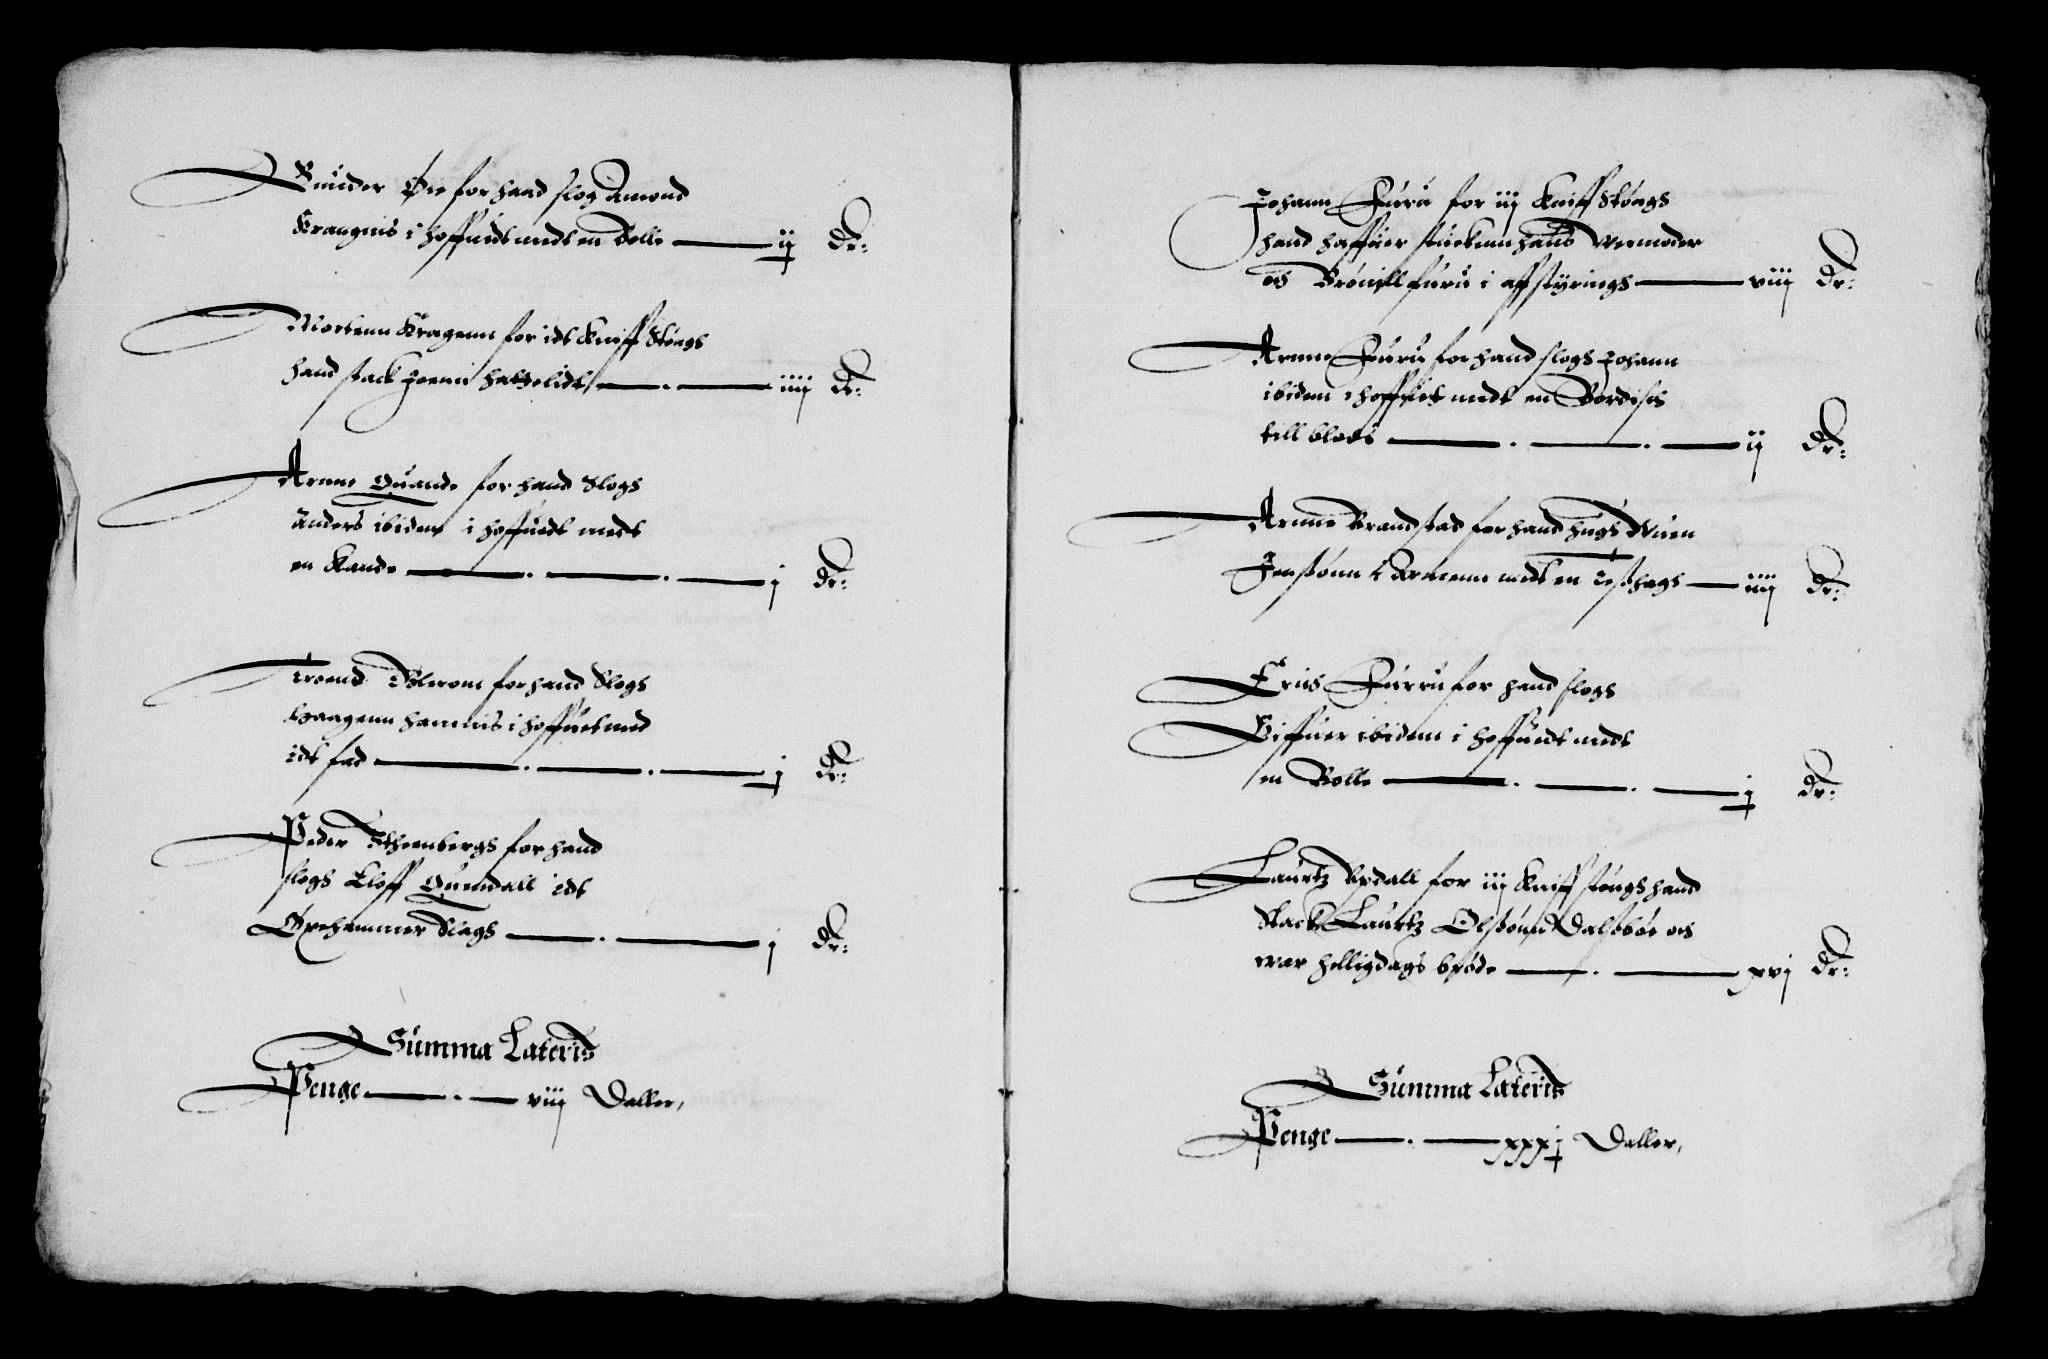 Gunder Øie for hand slog Amond
Krangnis i hoffuedt medt en Bolle — ij dr:
Mortenn Kragenn for idt Kniff Stongs
hand stack Joenn Hatzelidt — iiij dr:
Arnne Quande for hand Slogs
Anders ibidem i hoffuedt medt
en Kande — j dr:
Troend Blerom for hand Slogs
Haagenn hannis i hoffuet med
idt fad — j dr:
Peder Steenbergs for hand
slogs Eloff Quendall idt
Øxehammer Slags — j dr:
Summa Lateris
Penge — viij Daller,
Johann Furu for iij Kniff Stongs
hand haffuer stuckenn hans
och furu i aff styrings — viij dr:
Arnne Furu for hand slogs Johann
ibidem i hoffuet medt en Bordisk
till blods — ij dr:
Arnne Brandstad for hand hugs
Jenssønn i Armenn medt en — iiij dr:
Erics Furru for hand slogs
Siffuer ibidem i hoffuedt medt
en Bolle — j dr:
Lauritz Opdall for iij Kniff stongs hand
Stack Lauritz Olssønn Dalsbøe och
war helligdags brøde — xvj dr:
Summa Lateris
Penge — xxxj Daller,